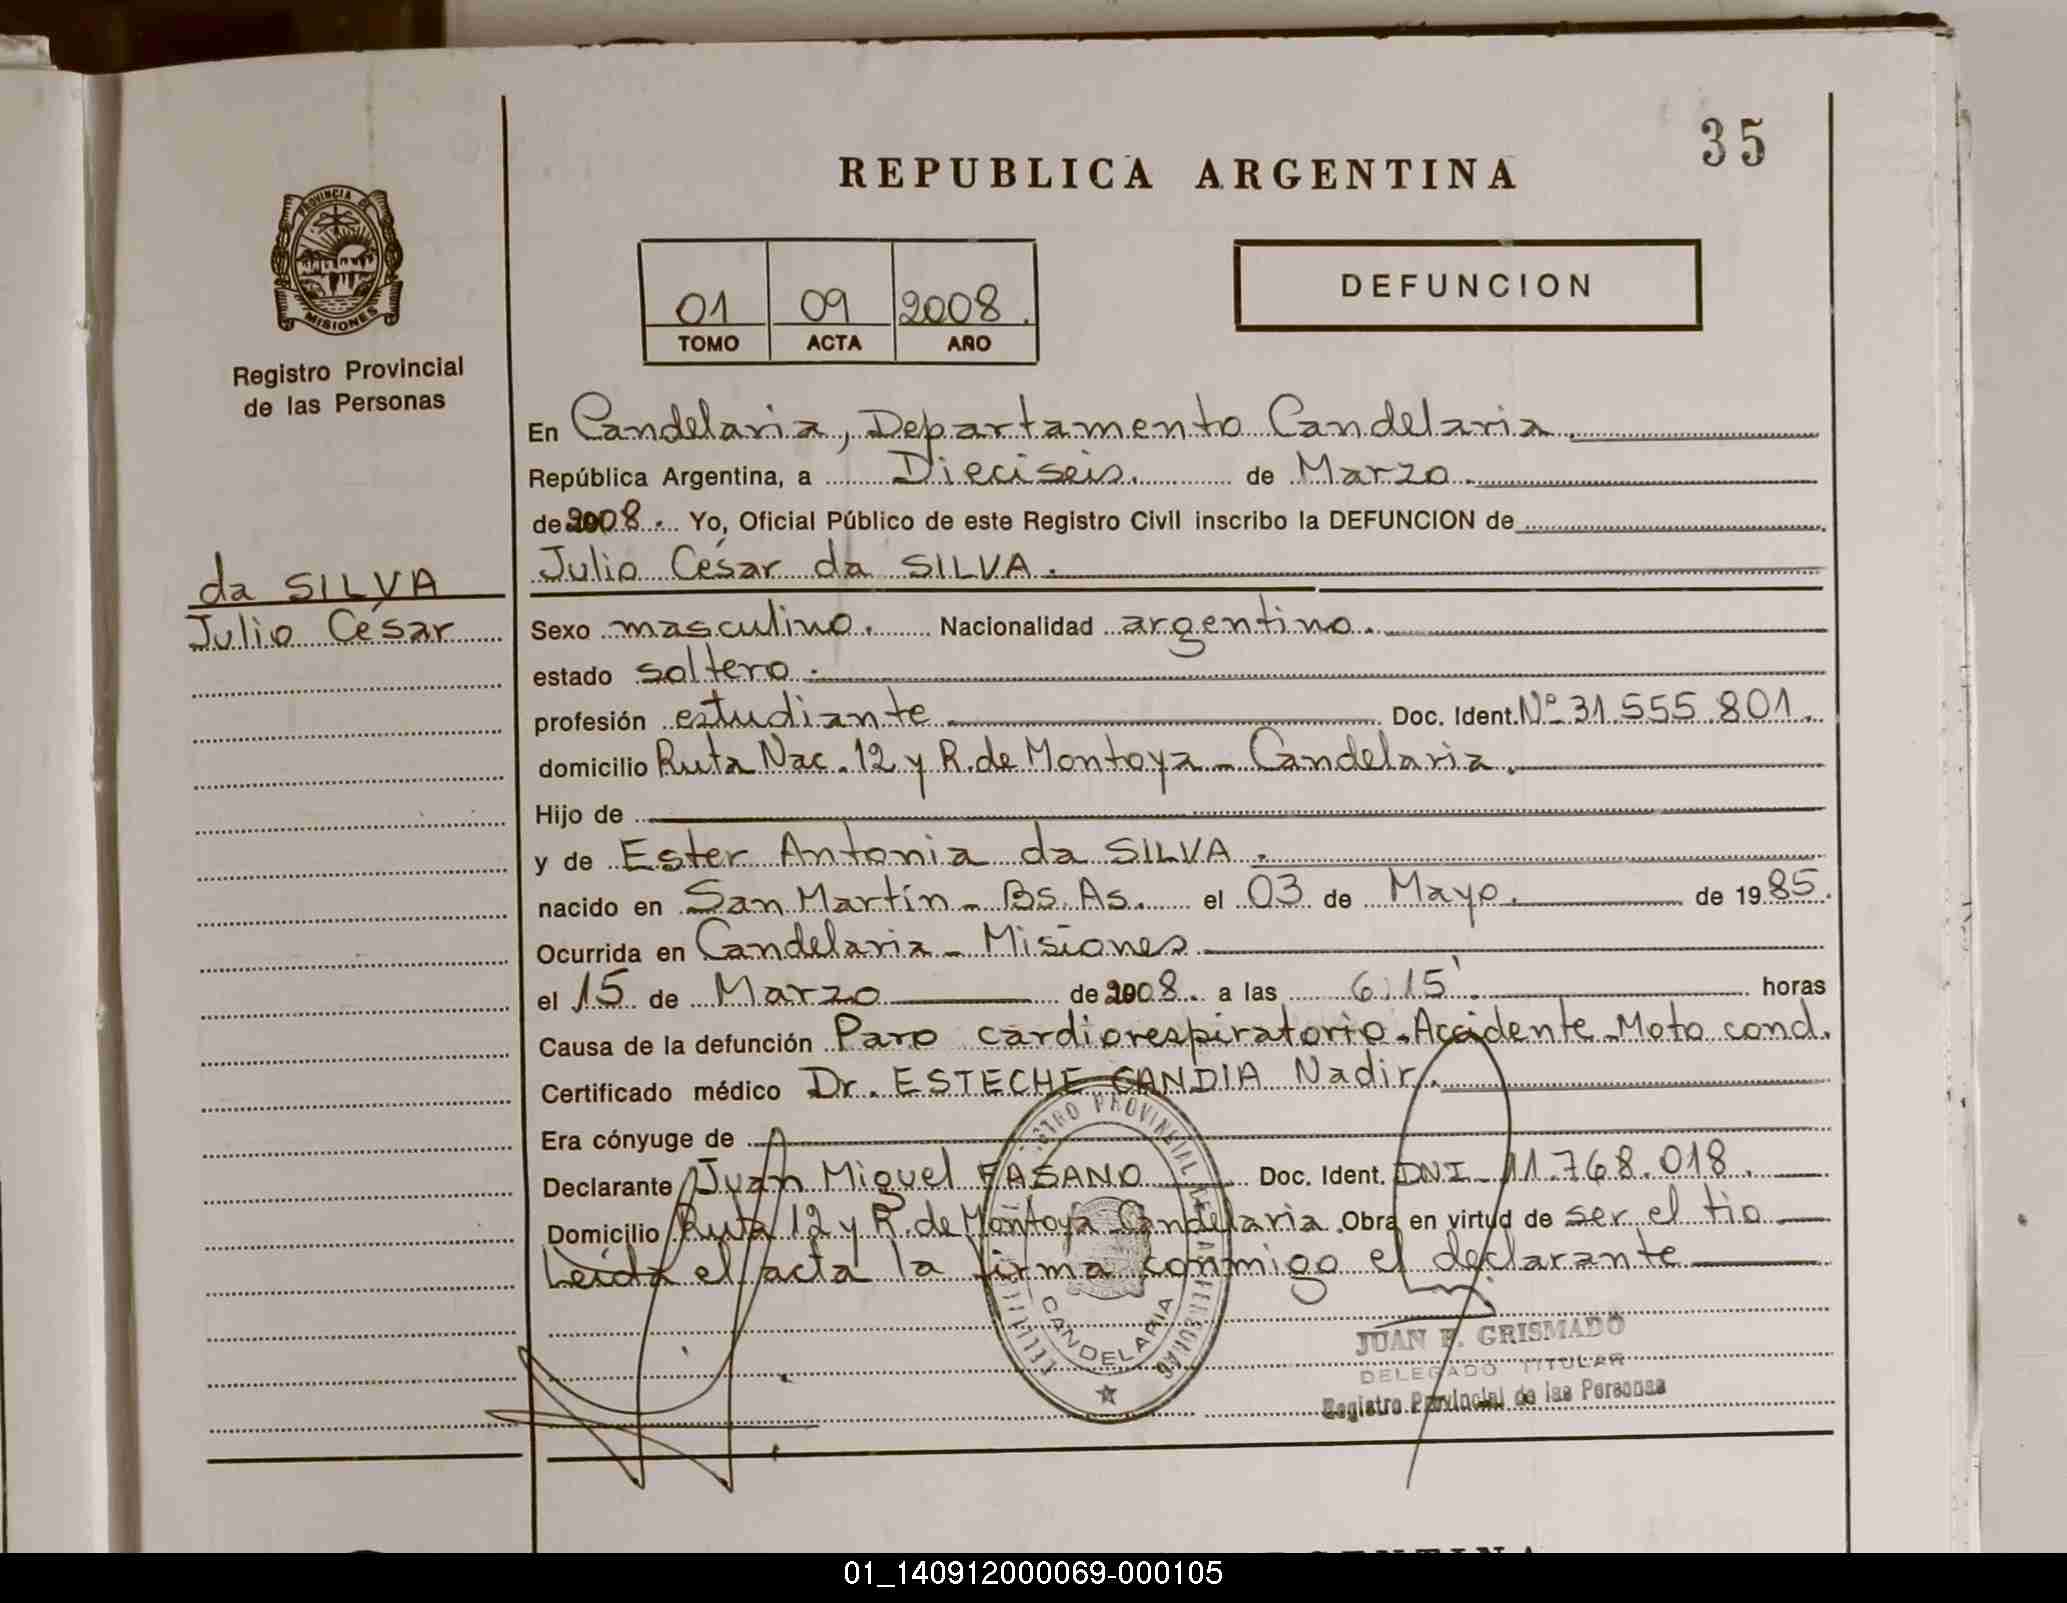 35
REPUBLICA ARGENTINA
PROVINCIA DE
MISIONES
Registro Provincial
de las Personas
01 09 2008.
TOMO ACTA AÑO
DEFUNCION
En Candelaria, Departamento Candelaria
República Argentina, a Dieciseis. de Marzo
de 2008. Yo, Oficial Público de este Registro Civil inscribo la DEFUNCION de
da SILVA
Julio César
Julio César da SILVA.
Sexo masculino. Nacionalidad argentino.
estado soltero.
profesión estudiante Doc. Ident. Nº 31.555.801.
domicilio Ruta Nac. 12 y R. de Montoya - Candelaria.
Hijo de
y de Ester Antonia da SILVA.
nacido en San Martín - Bs. As. el 03 de Mayo. de 1985.
Ocurrida en Candelaria - Misiones
el 15 de Marzo de 2008. a las 6:15' horas
Causa de la defunción Paro cardiorespiratorio - Accidente - Moto cond.
Certificado médico Dr. ESTECHE CANDIA Nadir.
Era cónyuge de
Declarante Juan Miguel FASANO Doc. Ident. DNI - 11.768.018.
Domicilio Ruta 12 y R. de Montoya Candelaria. Obra en virtud de ser el tio
Leída el acta la firma conmigo el declarante
PROVINCIAL
CANDELARIA
JUAN F. GRISMADO
DELEGADO TITULAR
Registro Provincial de las Personas
01_140912000069-000105